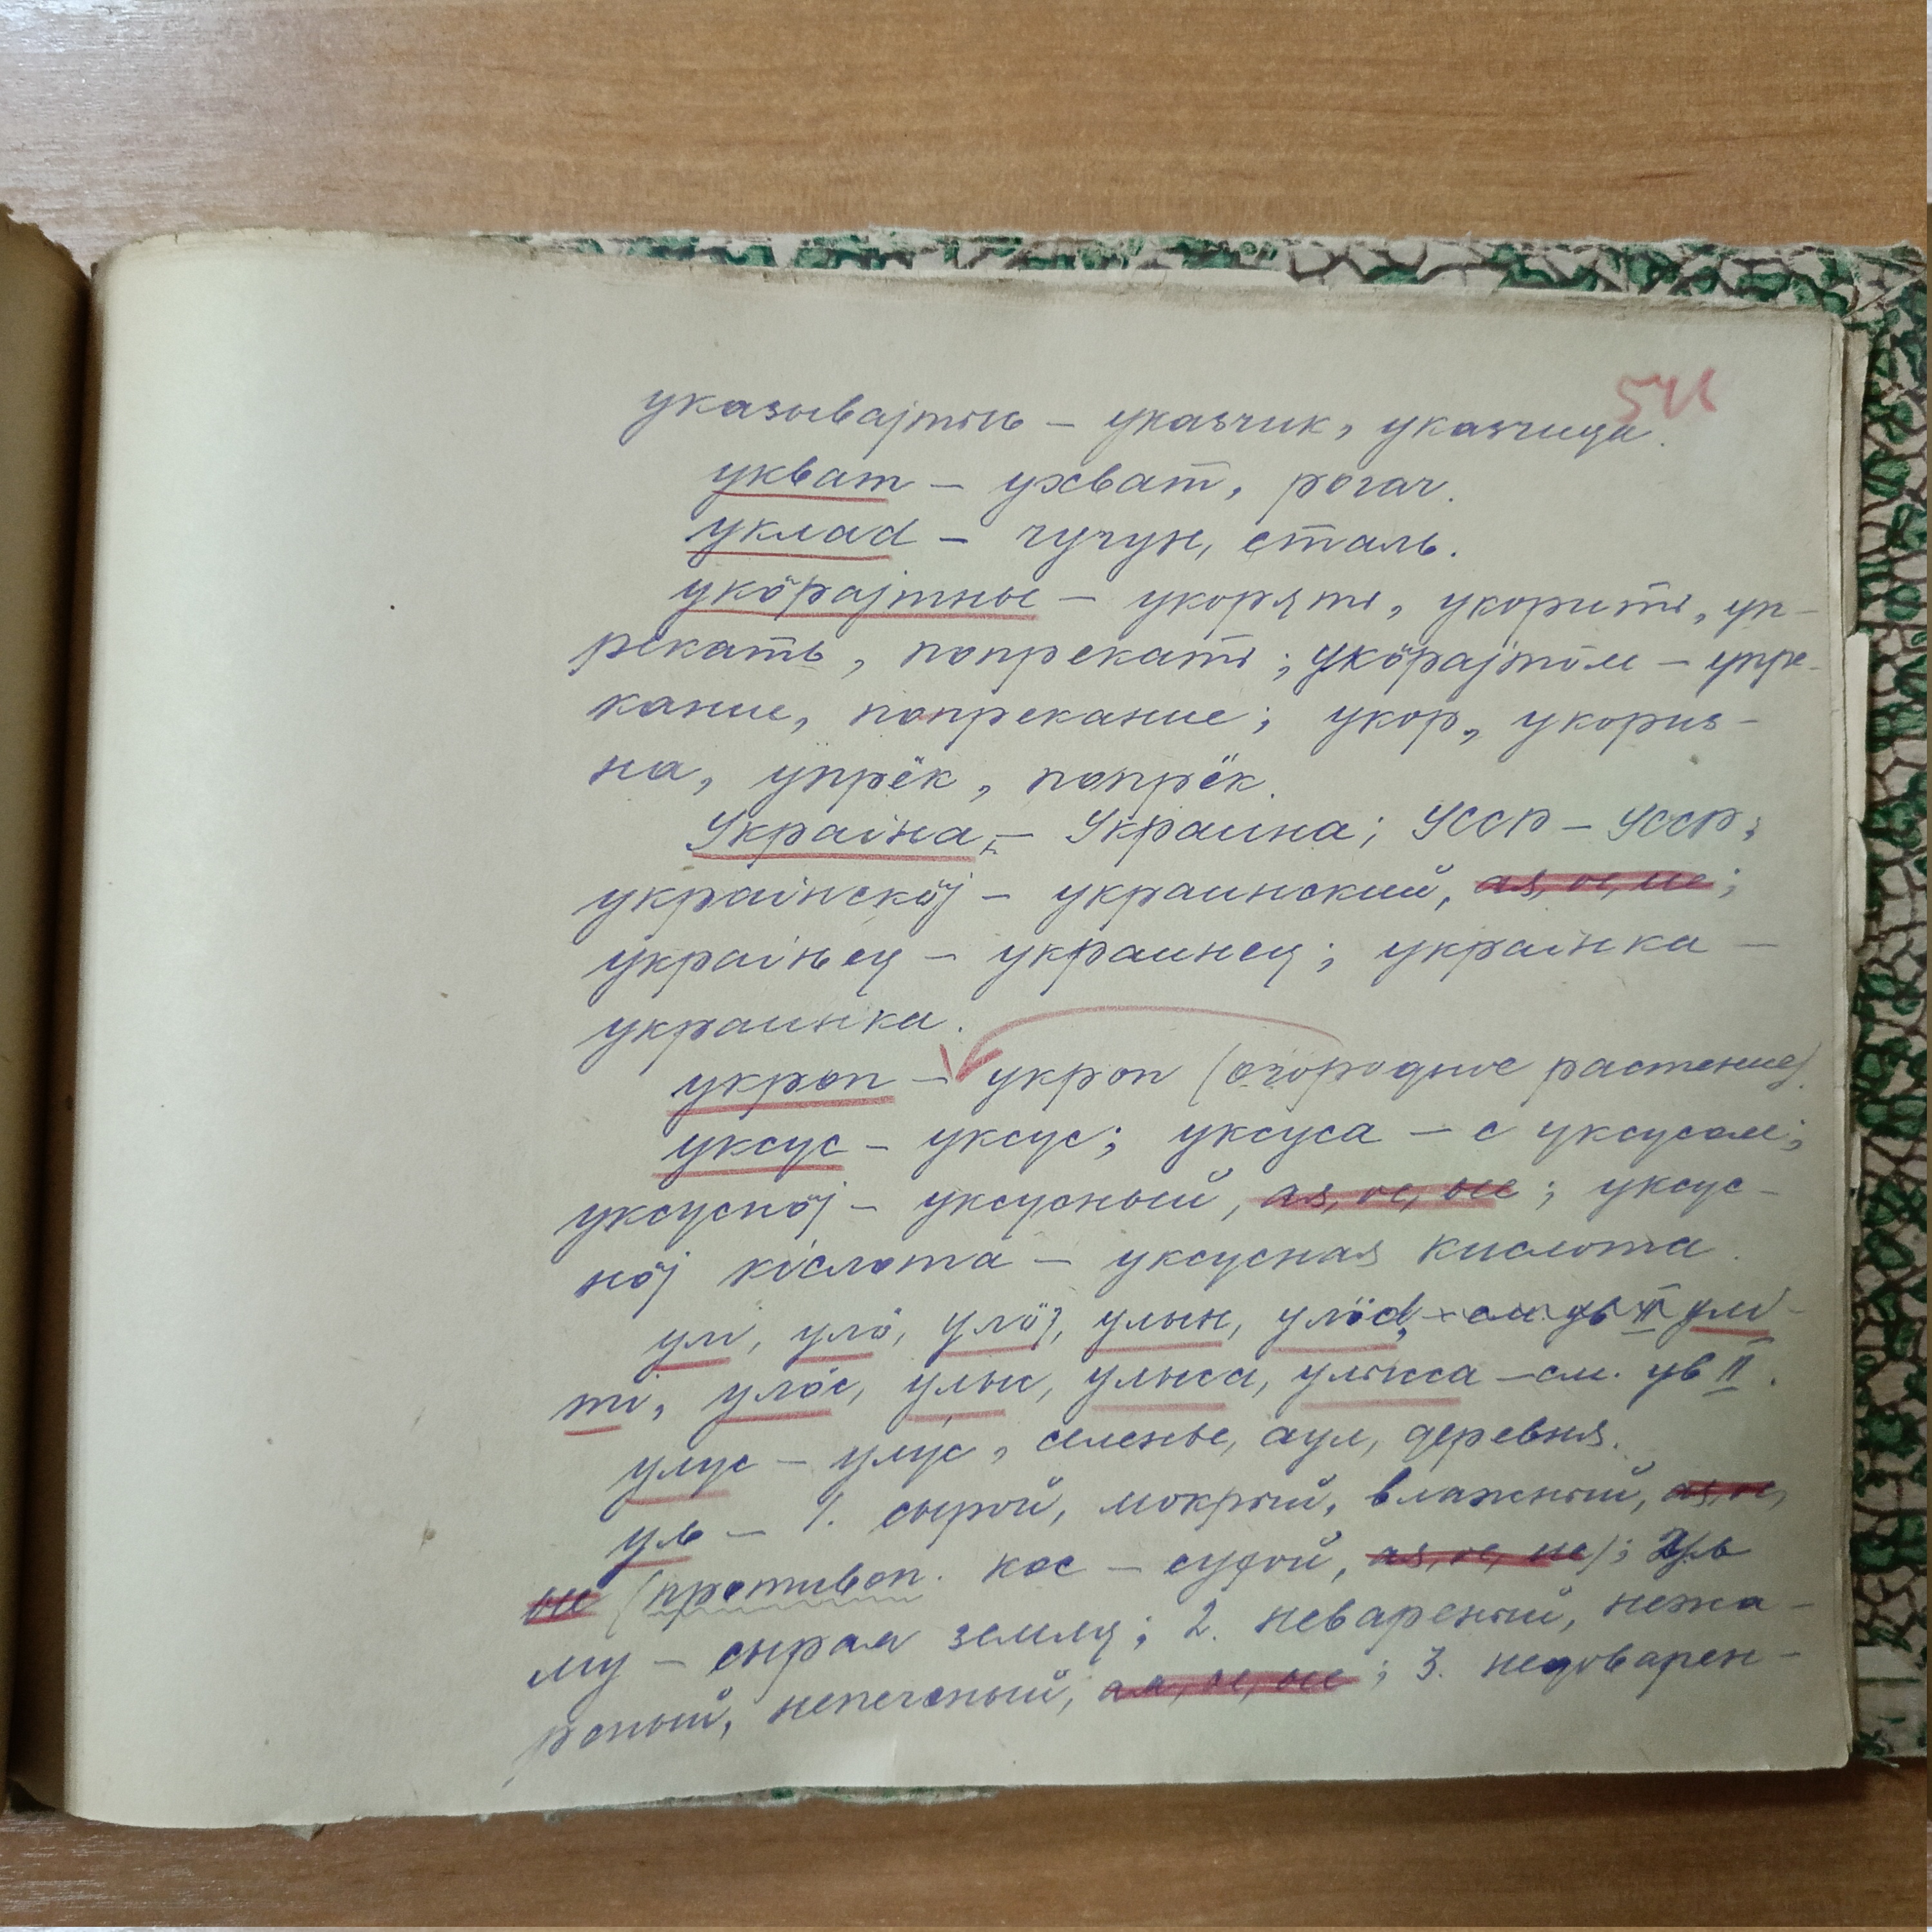 541
указывајтыс — указчик, указчица.
укват — ухват, рогач.
уклад — чугун, сталь.
укӧрајтны — укорять, укорить, уп-
рекать, попрекать; укӧрајтӧм — упре-
кание, попрекание; укор, укориз-
на, упрёк, попрёк.
Украіна, — Украина; УССР — УССР;
украінскӧј — украинский, ая, ое, ие;
украінец — украинец; украінка —
украинка.
укроп — укроп (огородное растение).
уксус — уксус; уксуса — с уксусом;
уксуснӧј — уксусный, ая, ое, ые; уксус-
нӧј кіслота — уксусная кислота.
улі, улӧ, улӧј, улын, улӧд, — см. ув II улі-
ті, улӧс, улыс, улыса, — см. ув II.
улус — улус, селенье, аул, деревня.
уль — 1. сырой, мокрый, влажный, ая, ое,
ые (противоп. кос — сухой, ая, ое, ие); уль
му — сырая земля; 2. невареный, нежа-
реный, непеченый, ая, ое, ые; 3. недоварен-